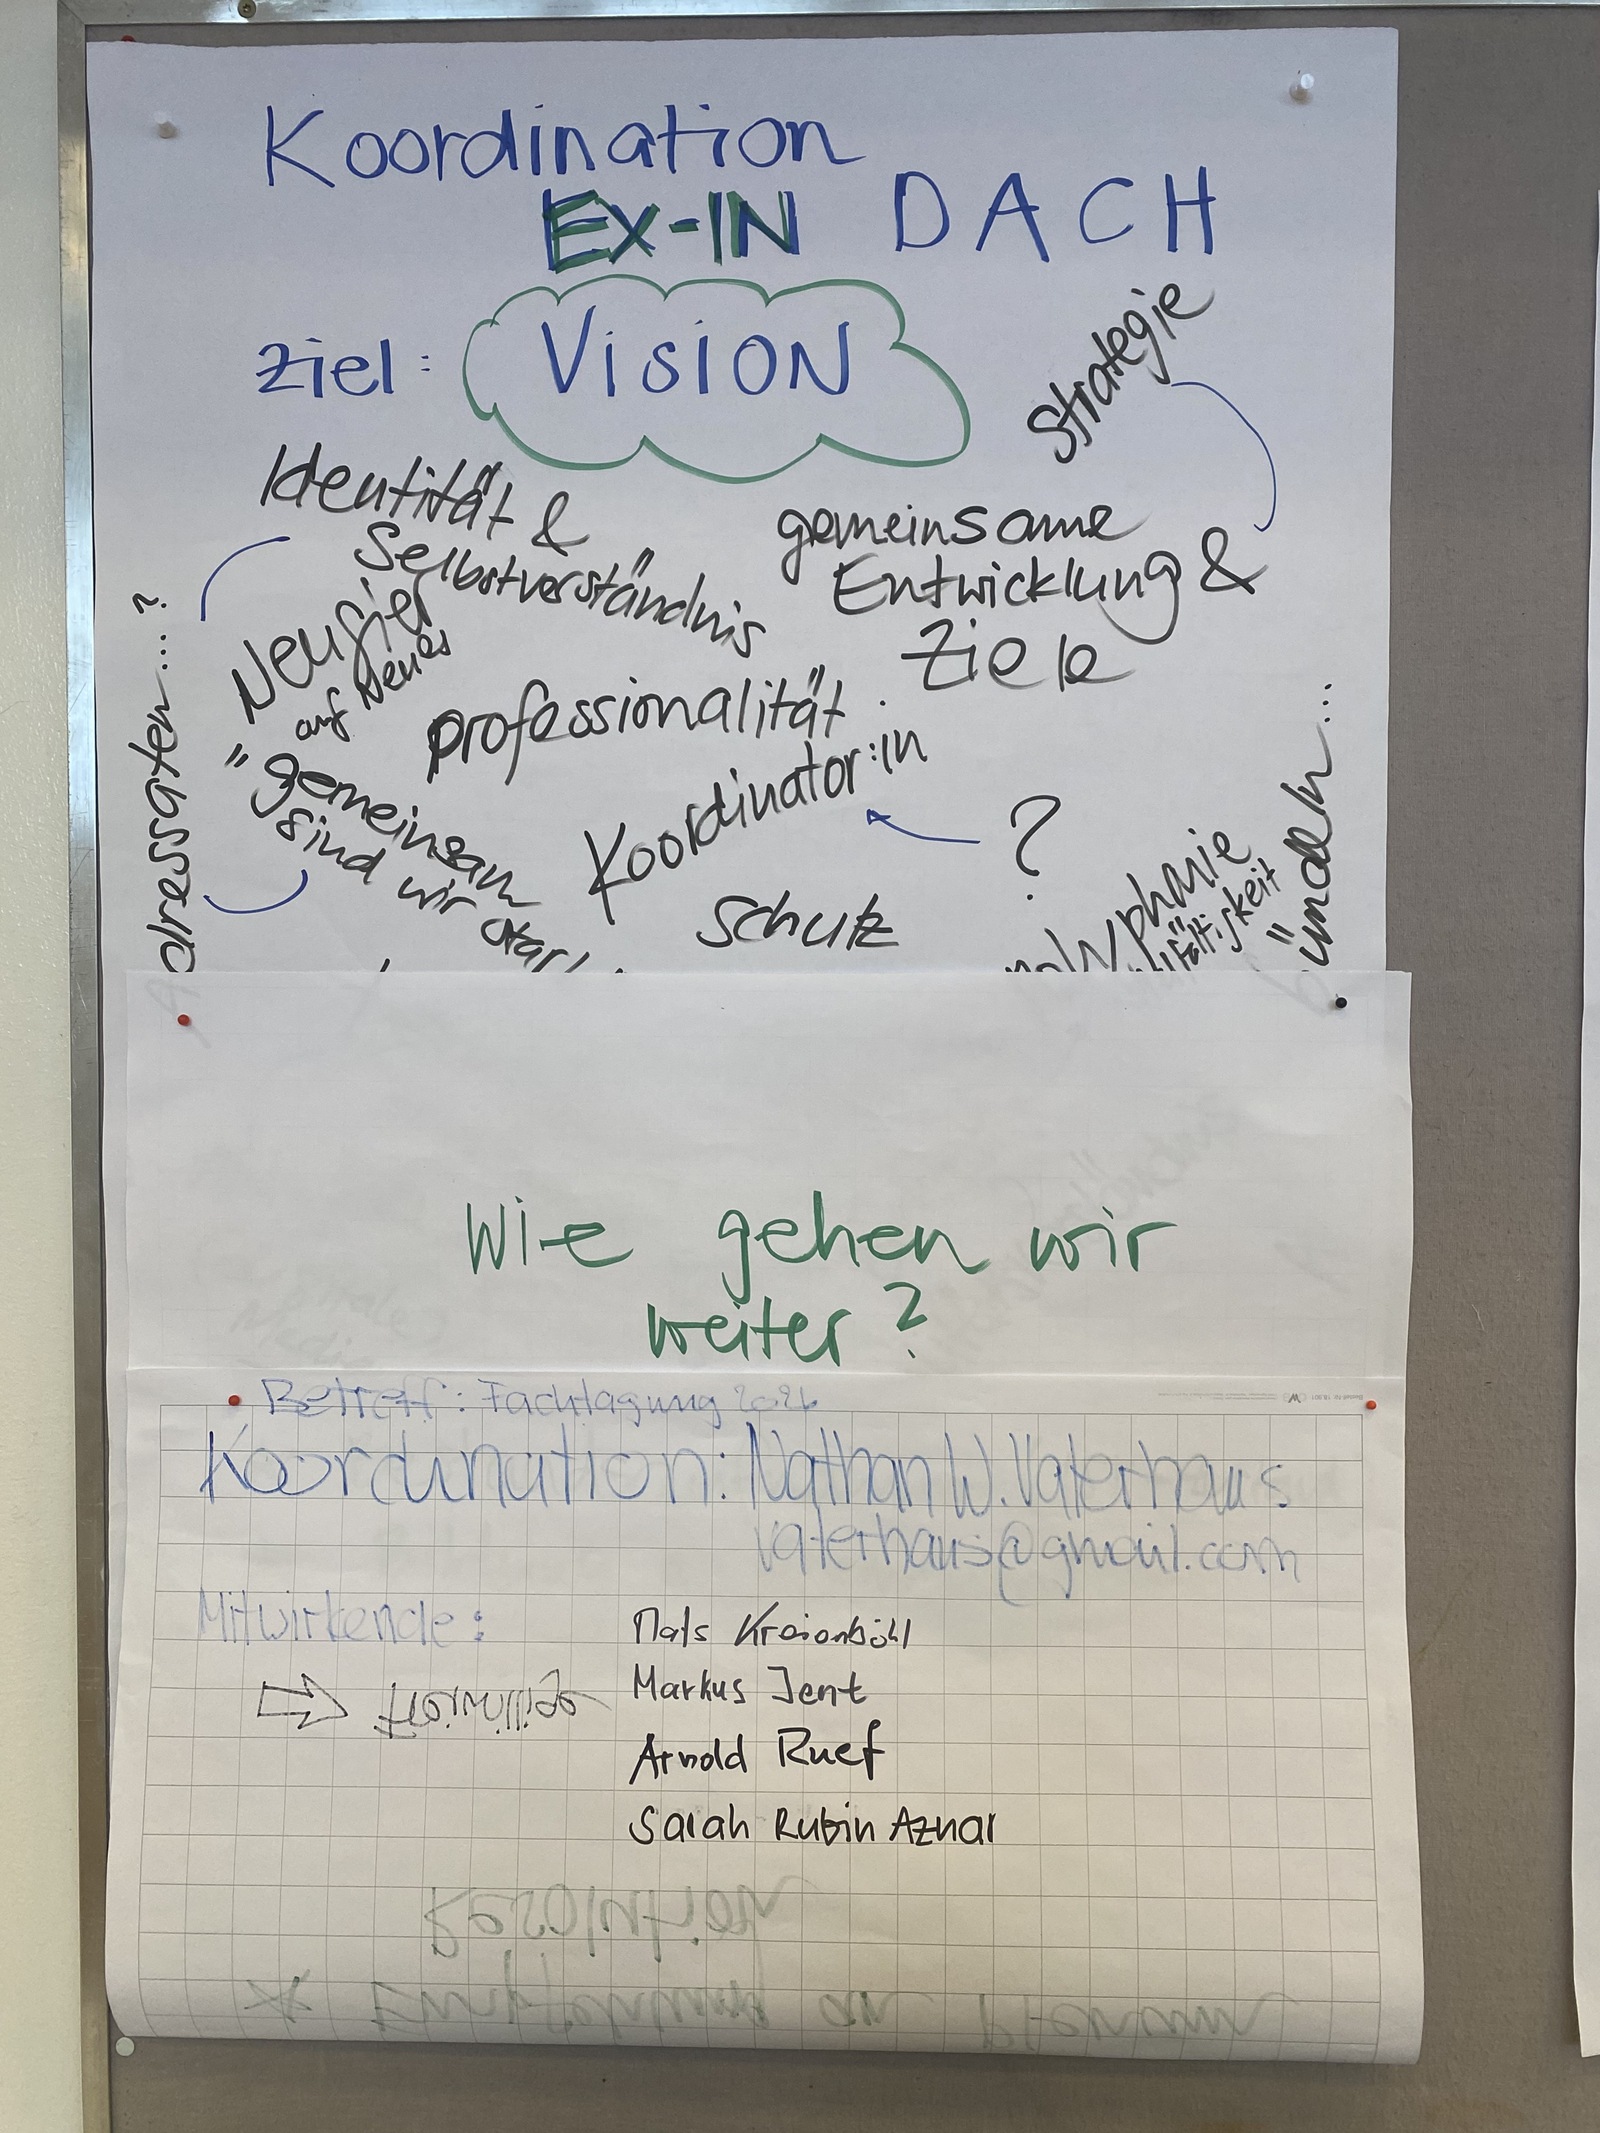 Koordination
EX-IN DACH
Ziel: VISION
Strategie
Identität &
Selbstverständnis
gemeinsame
Entwicklung &
Ziele
Adressaten...?
Neugier
auf Neues
professionalität
"gemeinsam
sind wir
Koordinator:in
?
Schutz
bündeln...
Wie gehen wir
weiter?
Betreff: Fachtagung 2026
Koordination: Nathan W. Vaterhaus
vaterhaus@gmail.com
Mitwirkende:
Mats Kreienbühl
Markus Jent
Arnold Ruef
Sarah Rubin Aznar